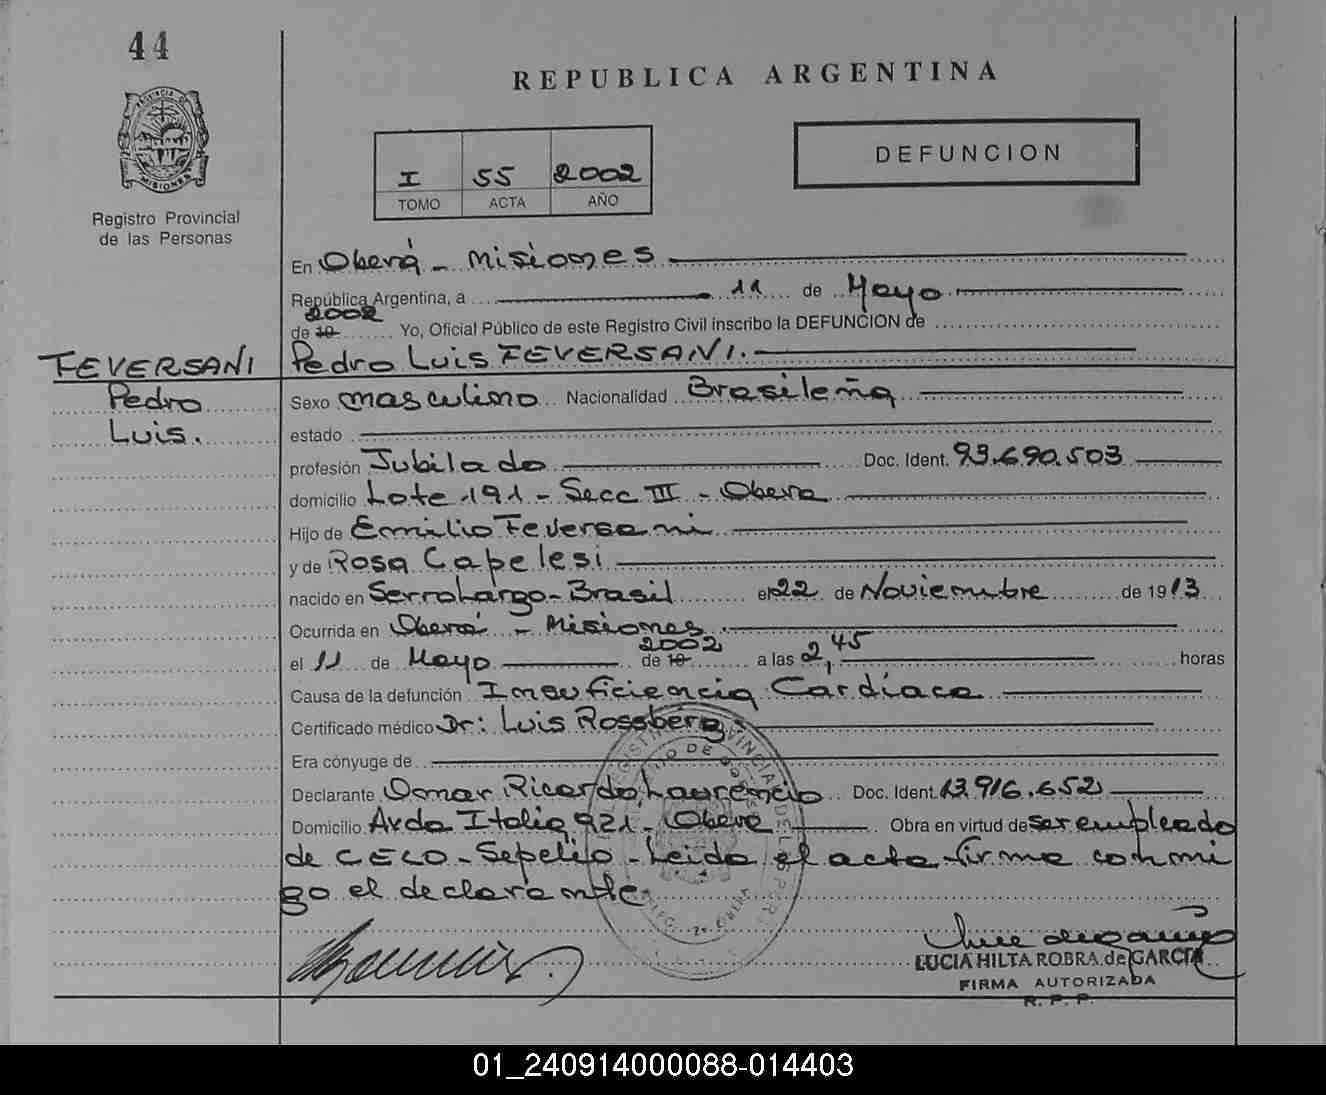 44
REPUBLICA ARGENTINA
PROVINCIA DE
MISIONES
Registro Provincial
de las Personas
I 55 2002
TOMO ACTA AÑO
DEFUNCION
En Oberá - Misiones
República Argentina, a 11 de Mayo
2002
de 19 Yo, Oficial Público de este Registro Civil inscribo la DEFUNCION de
FEVERSANI Pedro Luis FEVERSANI.
Pedro Sexo masculino Nacionalidad Brasileña
Luis. estado
profesión Jubilado Doc. Ident. 93.690.503
domicilio Lote 191 - Secc III - Obera
Hijo de Emilio Feversani
y de Rosa Capelesi
nacido en Serro Largo - Brasil el 22 de Noviembre de 1913
Ocurrida en Oberá - Misiones
2002
el 11 de Mayo de 19 a las 2,45 horas
Causa de la defunción Insuficiencia Cardíaca
Certificado médico Dr: Luis Rossberg
Era cónyuge de
Declarante Omar Ricardo Laurencio Doc. Ident. 13.916.652
Domicilio Avda Italia 921 - Oberá Obra en virtud de ser empleado
de CELO - Sepelio - Leida el acta firma conmi
go el declarante
LUCIA HILTA ROBRA de GARCIA
FIRMA AUTORIZADA
R. P. P.
01_240914000088-014403